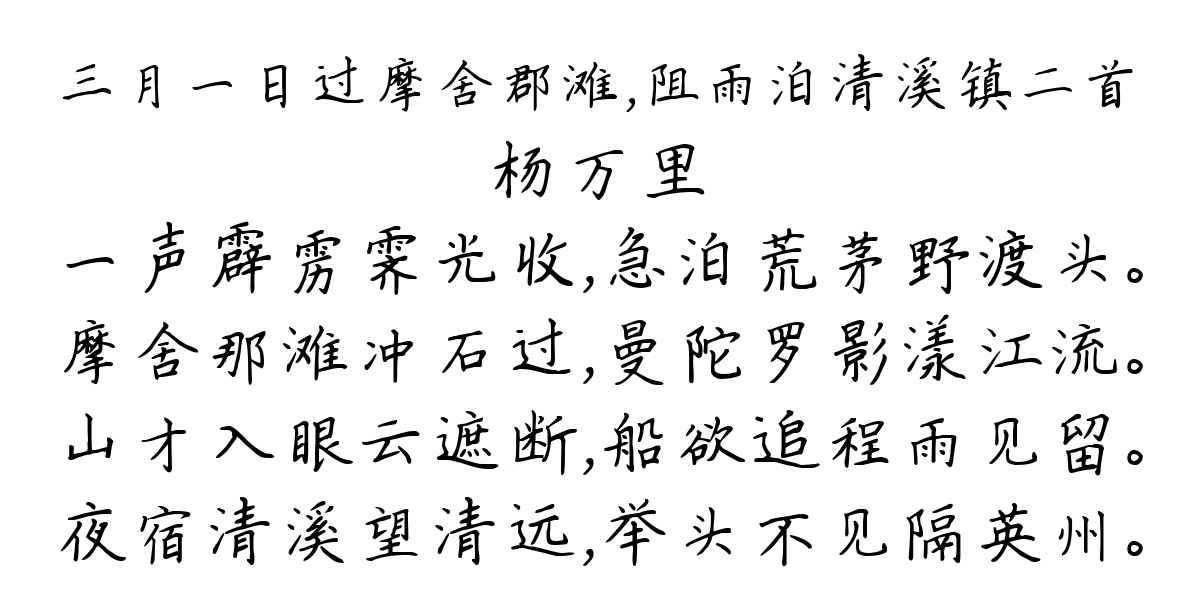 三月一日过摩舍郡滩,阻雨泊清溪镇二首
杨万里
一声霹雳霁光收,急泊荒茅野渡头。
摩舍那滩冲石过,曼陀罗影漾江流。
山才入眼云遮断,船欲追程雨见留。
夜宿清溪望清远,举头不见隔英州。